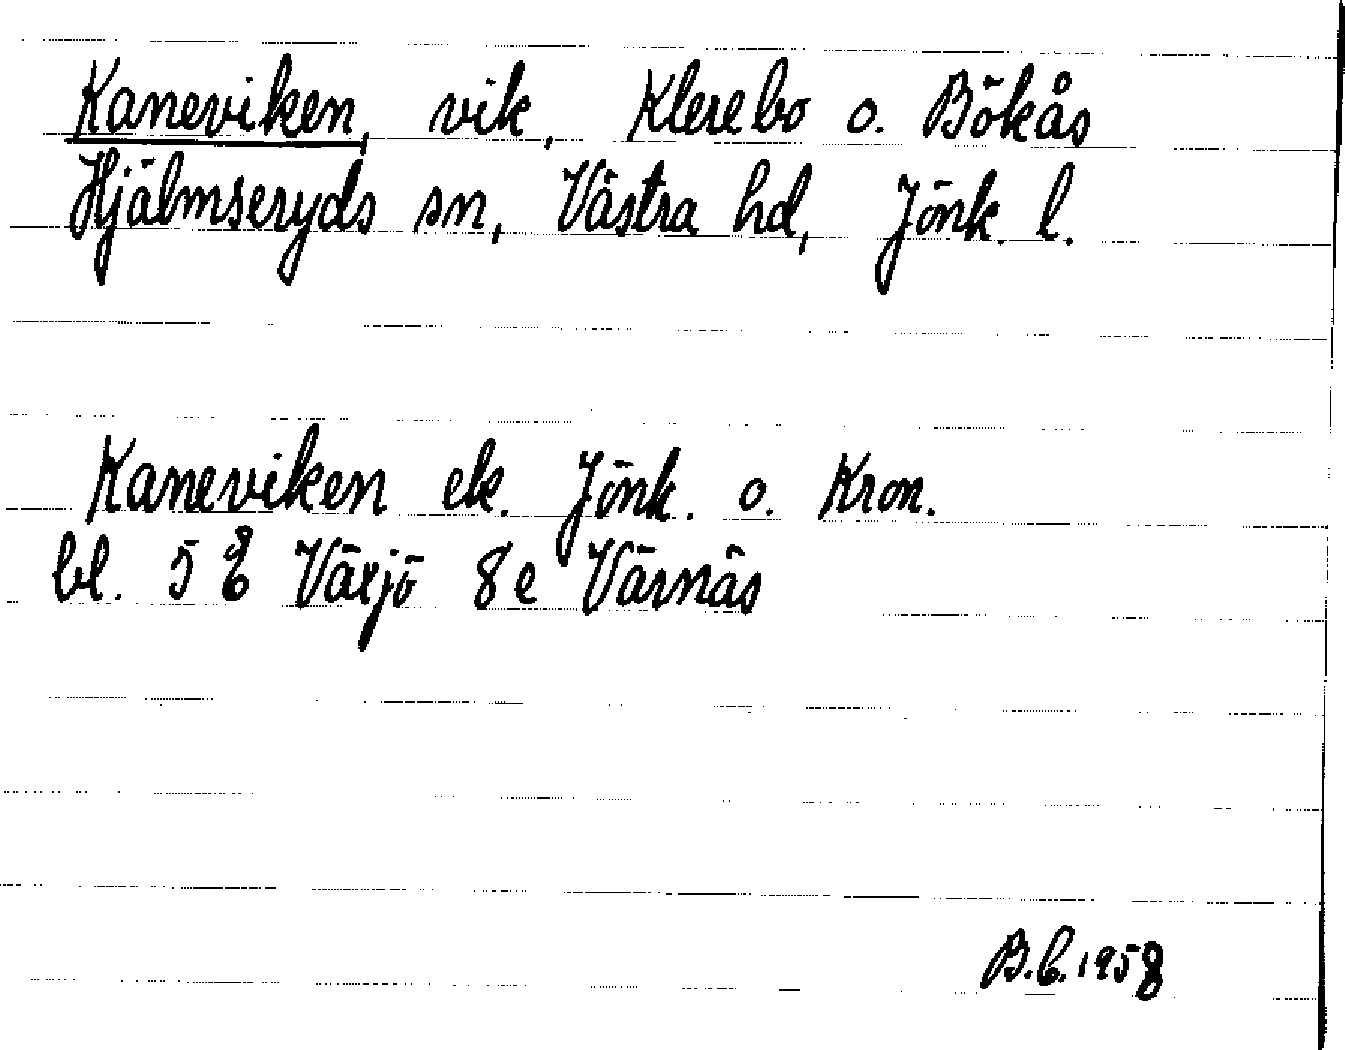 Kaneviken, vik, Klerebo o. Bökås
Hjälmseryds sn, Västra hd, Jönk. l.
Kaneviken ek. Jönk. o. Kron.
bl. 5 E Växjö 8e Värnäs
B.E. 1958